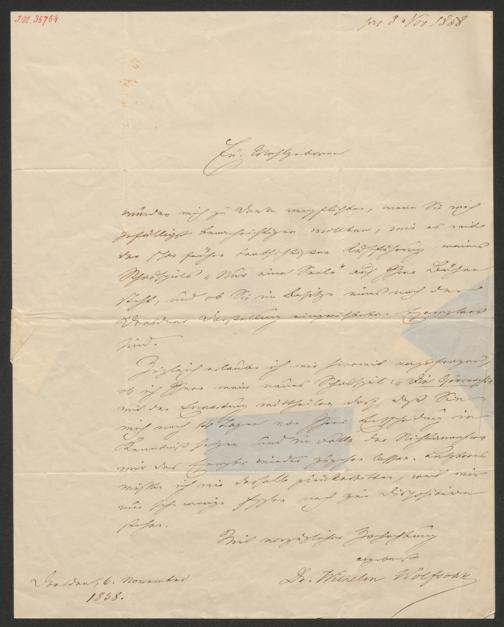 I.N. 35764
8 Nov 1858
Eu. Wohlgeboren
würden mich zu Dank verpflichten, wenn Sie mich
gefälligst benachrichtigen wollten, wie es mit
der früher beabsichtigten Aufführung meines
Schauspiels "Nur eine Seele" auf Ihrer Bühne
steht, und ob Sie im Besitze eines nach der
Dresdner Darstellung eingerichteten Exemplars
sind.
Zugleich erlaube ich mir hiermit anzufragen,
ob ich Ihnen mein neues Schauspiel "Die
mit der mittheilen darf, daß Sie
mich nach 14 Tagen von Ihrer Entscheidung in
Kenntniß setzen und im Falle der Nichtannahme
mir das Exemplar wieder zugehen lassen.
müßte ich mir deshalb weil mir
nur sehr wenige noch zur Disposition
stehen.
Mit vorzüglicher Hochachtung
ergebenst
Dr. Wilhelm Wolfsohn
Dresden, 6. November
1858.